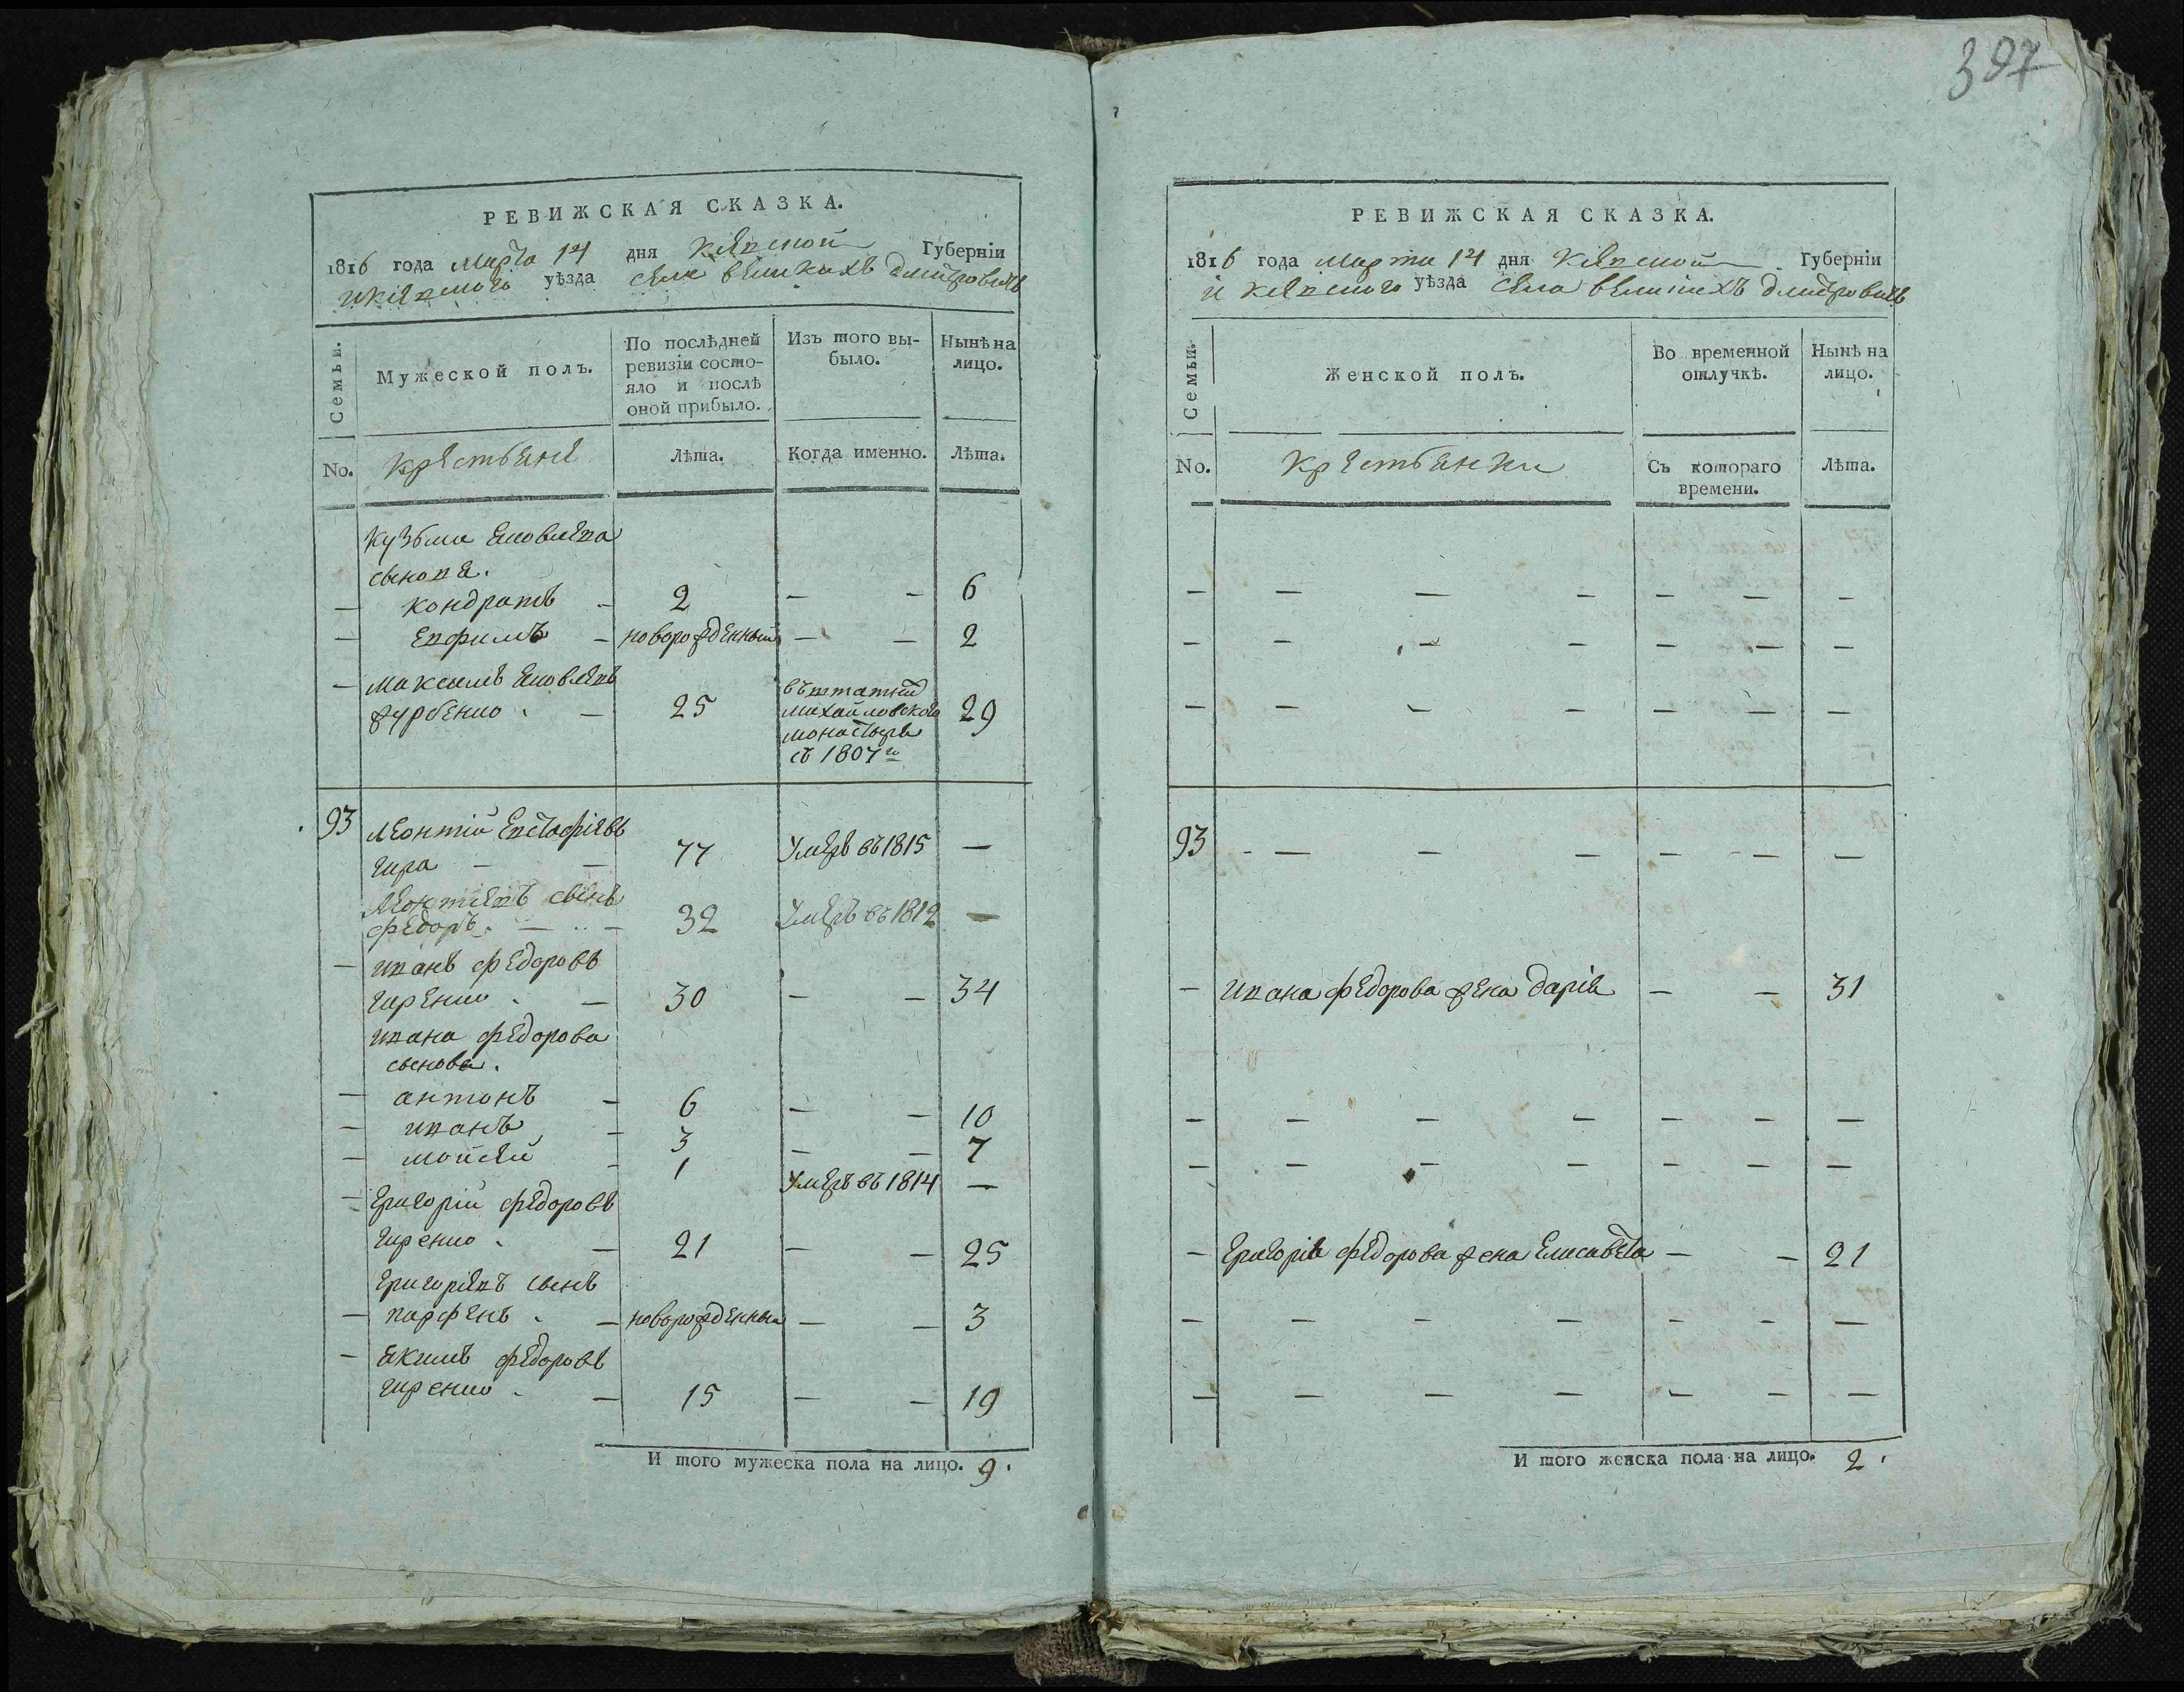 397
РЕВИЖСКАЯ СКАЗКА.
1816 года марта 14 дня Киевской Губерніи
и Киевского уѣзда села великихъ дмитровичъ
Семьи.
Мужеской полъ.
По послѣдней
ревизіи состо-
яло и послѣ
оной прибыло.
Изъ того вы-
было.
Нынѣ на
лицо.
No.
крестьяне
Лѣта.
Когда именно.
Лѣта.
Кузьми Яковлева
сынова.
— кондратъ — 2 — — 6
— Евфимъ — новорожденный — — 2
— максимъ Яковлевъ
журбенко. — 25 — 29
въ штатни
михайловского
монастыря
съ 1807го
93 Леонтій Евстафіевъ
гира — — 77 Умеръ въ 1815 —
Леонтіевъ сынъ
Федоръ. — 32 Умеръ въ 1812 —
— иванъ Федоровъ
гиренко. — 30 — — 34
ивана Федорова
сынова.
— антонъ — 6 — — 10
— иванъ — 3 — — 7
— мойсей — 1 Умеръ въ 1814 —
— григорій Федоровъ
гиренко. — 21 — — 25
григоріевъ сынъ
— парфенъ. — новорожденный — — 3
— Якимъ Федоровъ
гиренко. — 15 — — 19
И того мужеска пола на лицо. 9.
РЕВИЖСКАЯ СКАЗКА.
1816 года марта 14 дня Киевской Губерніи
и Киевского уѣзда села великихъ дмитровичъ
Семьи.
Женской полъ.
Во временной
отлучкѣ.
Нынѣ на
лицо.
No.
крестьянки
Съ котораго
времени.
Лѣта.
— — — — — — —
— — — — — — —
— — — — — — —
93 — — — — — —
— ивана Федорова жена дарія — — 31
— — — — — — —
— — — — — — —
— григорія Федорова жена Елисавета — — 21
— — — — — — —
— — — — — — —
И того женска пола на лицо. 2.